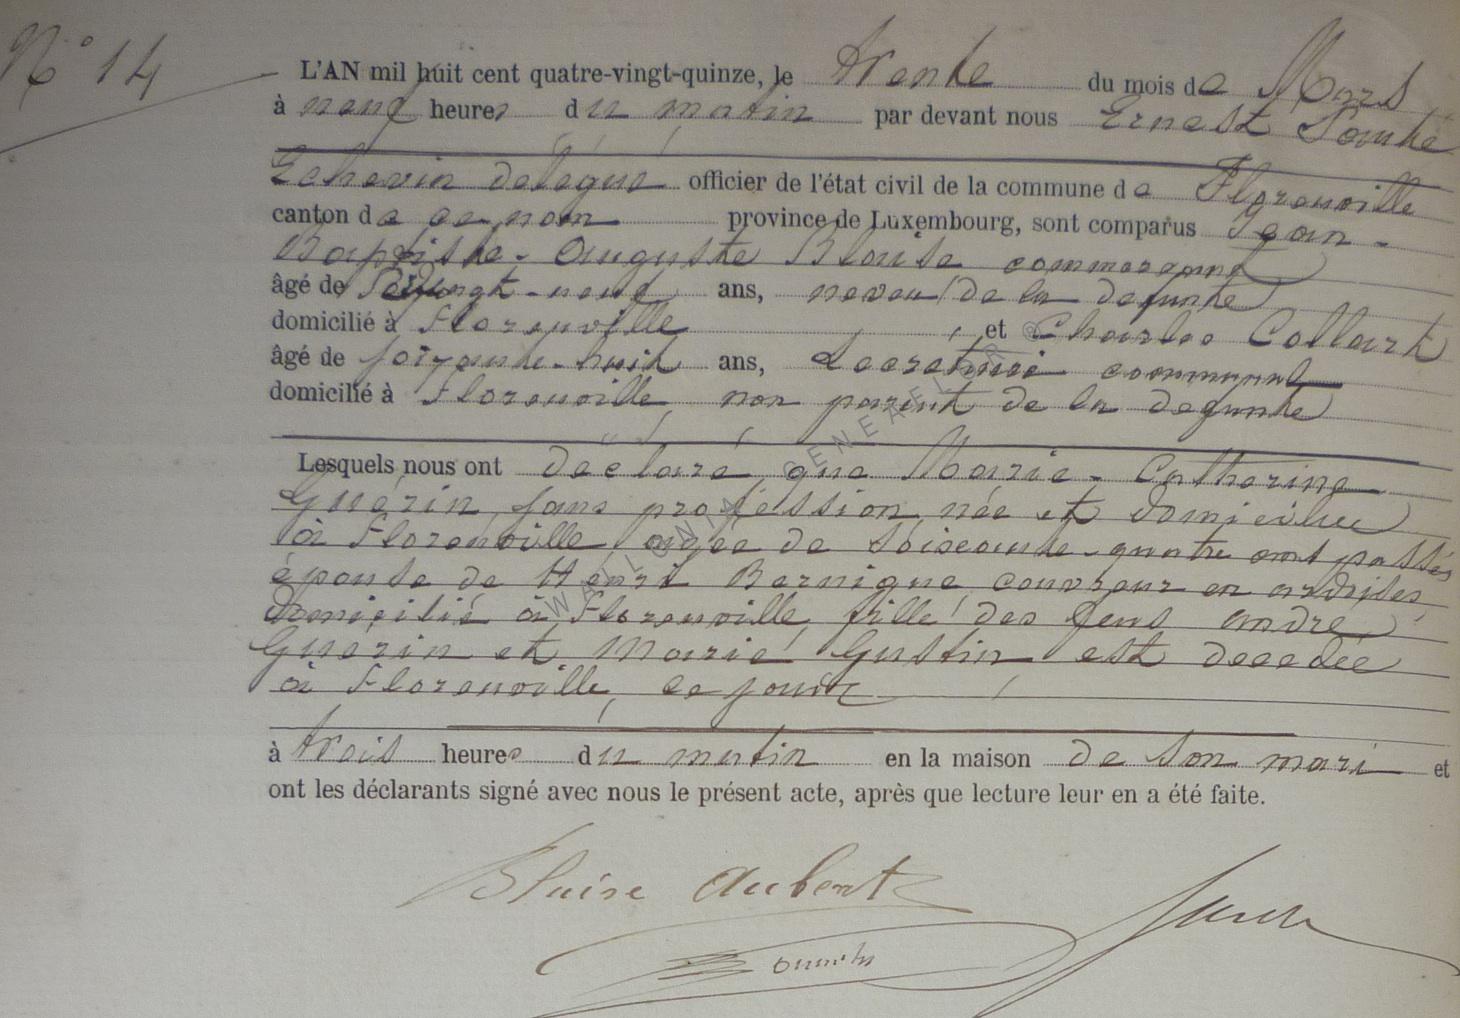 N° 14
L'AN mil huit cent quatre-vingt-quinze, le trente du mois de Mars
à neuf heures du matin par devant nous Ernest
Echevin délégué officier de l'état civil de la commune de Florenville
canton de ce nom province de Luxembourg, sont comparus Jean-
Baptiste-Auguste Blaise commerçant
âgé de vingt-neuf ans, neveu de la defunte
domicilié à Florenville et Charles Collart
âgé de soixante-huit ans, Secretaire communal
domicilié à Florenville, non parent de la defunte
Lesquels nous ont déclaré que Marie-Catherine
Guérin, sans profession née et domiciliée
à Florenville, agée de soixante-quatre ans passés
épouse de Henri Bernique couvreur en ardoises
domicilié à Florenville, fille des feus André
Guérin et Marie Gustin est decedée
à Florenville, ce jour
à trois heures du matin en la maison de son mari et
ont les déclarants signé avec nous le présent acte, après que lecture leur en a été faite.
Blaise
WALLONIA GENEALOR